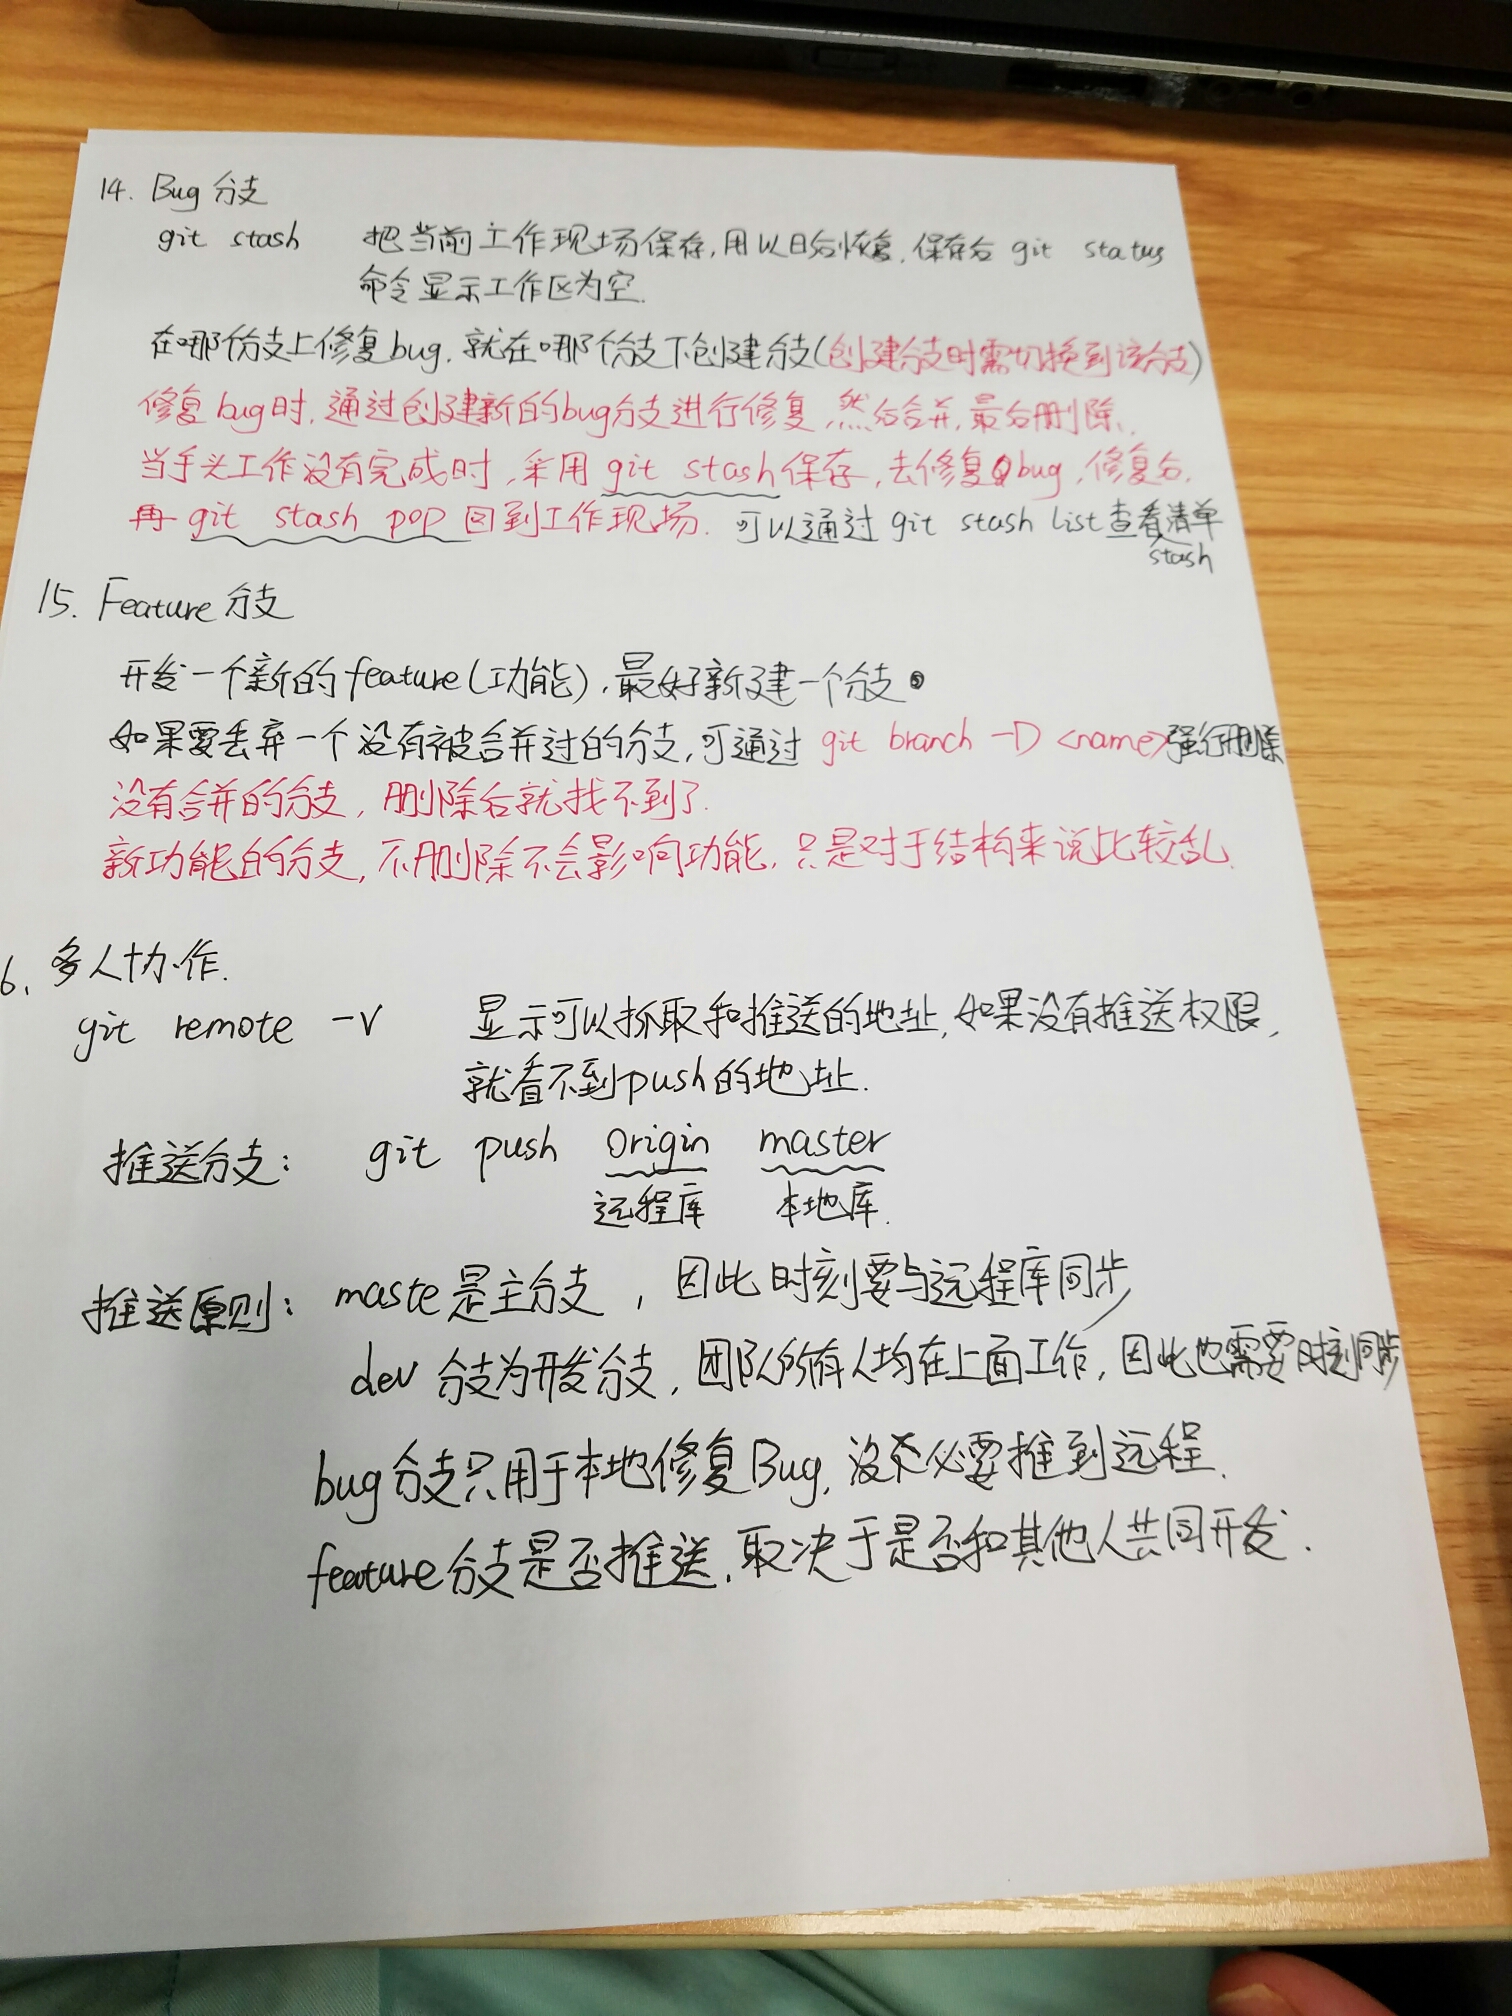 14. Bug 分支
git stash 把当前工作现场保存,用以日后恢复.保存后 git status
命令显示工作区为空.
在哪个分支上修复bug.就在哪个分支下创建分支(创建分支时需切换到该分支)
修复bug时,通过创建新的bug分支进行修复,然后合并,最后删除.
当手头工作没有完成时,采用git stash保存,去修复bug,修复后.
再git stash pop回到工作现场. 可以通过git stash list查看清单
stash
15. Feature 分支
开发一个新的feature(功能),最好新建一个分支
如果要丢弃一个没有被合并过的分支,可通过 git branch -D <name>强行删除
没有合并的分支,删除后就找不到了.
新功能的分支,不删除不会影响功能,只是对于结构来说比较乱.
6. 多人协作.
git remote -v 显示可以抓取和推送的地址,如果没有推送权限,
就看不到push的地址.
推送分支: git push origin master
远程库 本地库.
推送原则: maste是主分支,因此时刻要与远程库同步
dev 分支为开发分支,团队所有人均在上面工作,因此也需要时刻同步
bug分支只用于本地修复Bug,没不必要推到远程.
feature分支是否推送,取决于是否和其他人共同开发.